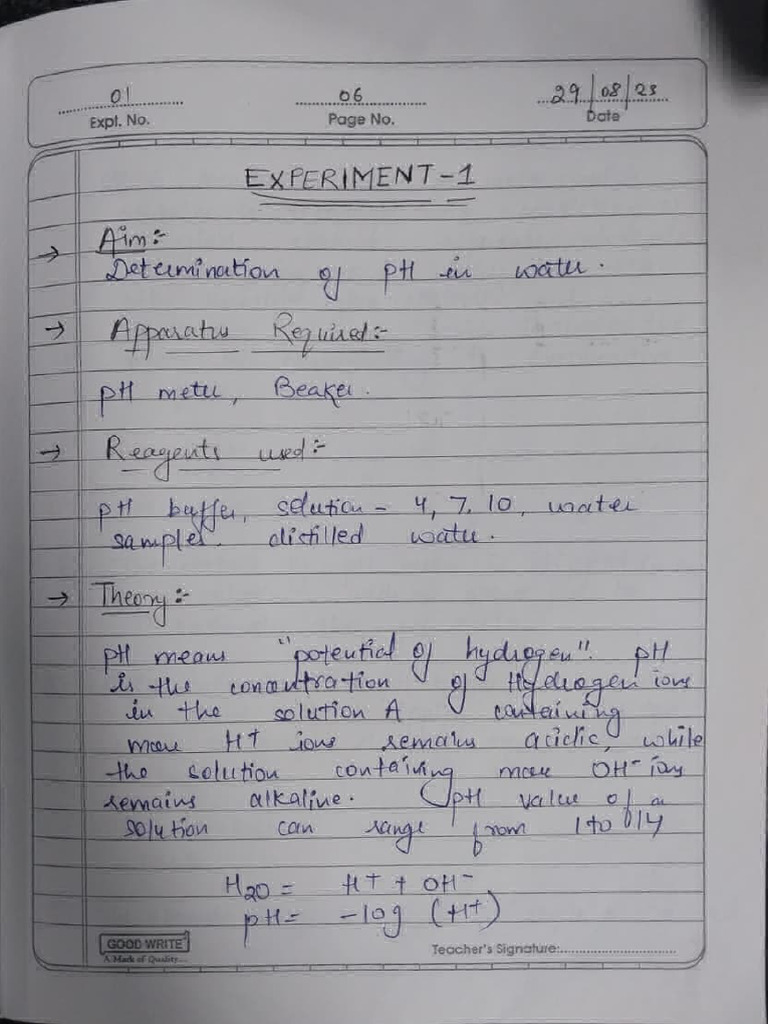 01 06 29/08/23
Expt. No. Page No. Date
EXPERIMENT-1
→ Aim:-
Determination of pH in water.
→ Apparatus Required:-
pH meter, Beaker.
→ Reagents used:-
pH buffer, solution - 4, 7, 10, water
samples. distilled water.
→ Theory:-
pH means "potential of hydrogen". pH
is the concentration of Hydrogen ions
in the solution A containing
more H+ ions remains acidic, while
the solution containing more OH- ions
remains alkaline. pH value of a
solution can range from 1 to 14
H2O = H+ + OH-
pH = -log (H+)
GOOD WRITE
A Mark of Quality...
Teacher's Signature: